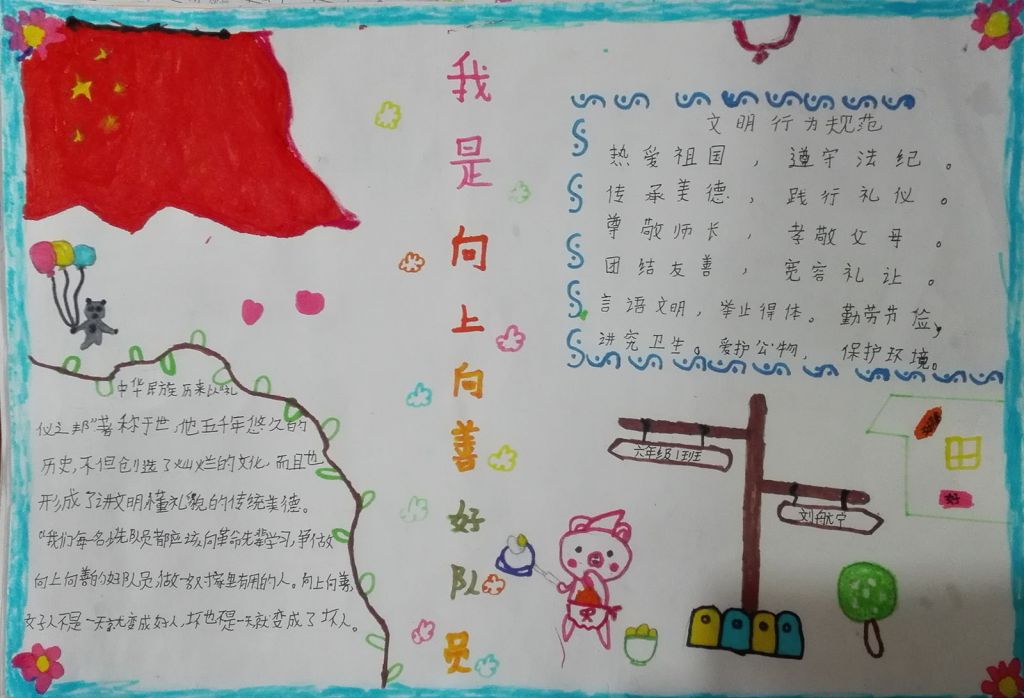 我是向上向善好队员
文明行为规范
热爱祖国，遵守法纪。
传承美德，践行礼仪。
尊敬师长，孝敬父母。
团结友善，宽容礼让。
言语文明，举止得体。勤劳节俭，
讲究卫生。爱护公物，保护环境。
中华民族历来以“礼
仪之邦”著称于世，他五千年悠久的
历史，不但创造了灿烂的文化，而且也
形成了讲文明懂礼貌的传统美德。
“我们每名少先队员都应该向革命先辈学习，争做
向上向善的好队员，做一个对国家有用的人。向上向善，
好人不是一天就变成好人，坏也不是一天就变成了坏人。
六年级1班
刘航宁